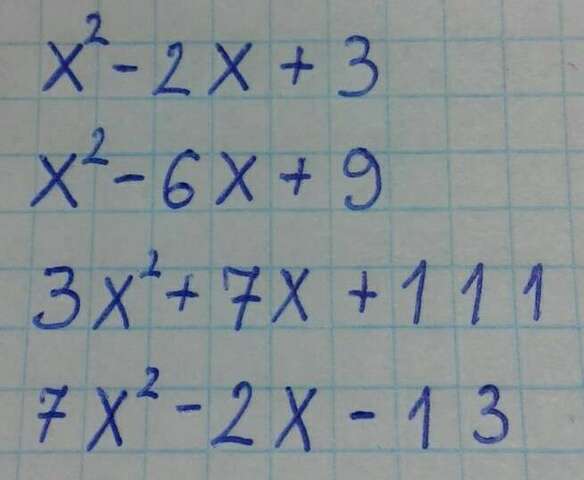 x² - 2x + 3
x² - 6x + 9
3x² + 7x + 111
7x² - 2x - 13